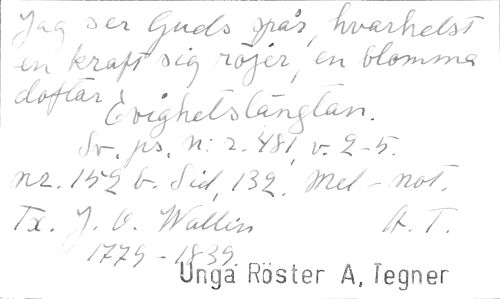 Jag ser Guds spår, hvarhelst
en kraft sig röjer, en blomma
doftar.
Evighetslängtan.
Sv. ps. n:r. 481, v. 2-5.
nr. 152 b. Sid, 132. Mel-not.
Tx. J. O. Wallin A. T.
1779-1839.
Unga Röster A, Tegner